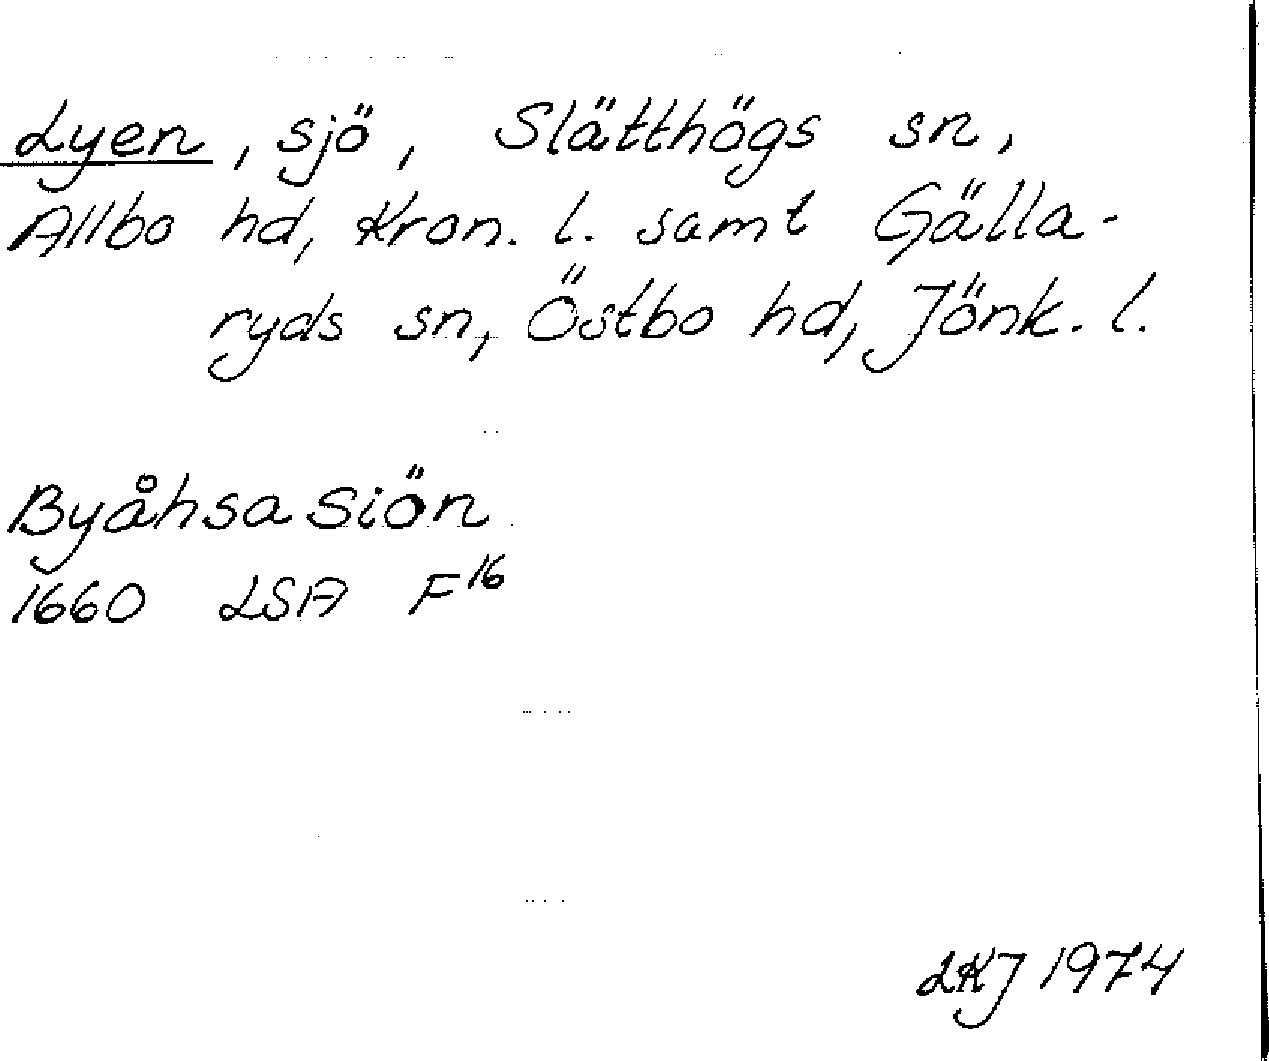 Lyen, sjö, Slätthögs sn,
Allbo hd, Kron. l. samt Gälla-
ryds sn, Östbo hd, Jönk. l.
Byåhsa Siön
1660 LSA F16
LKJ 1974